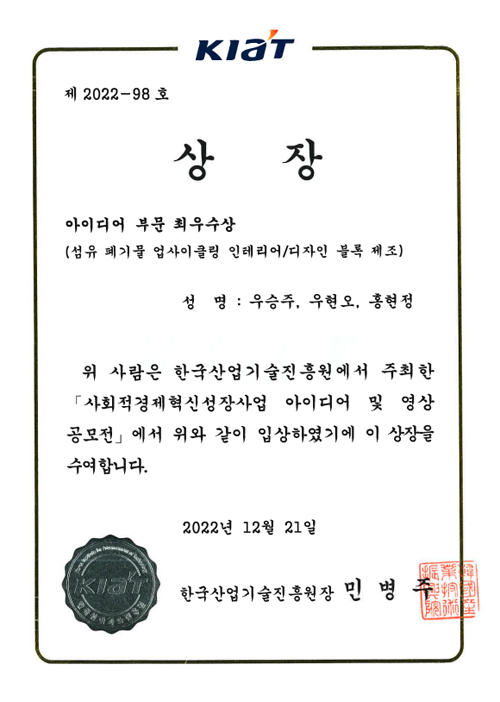 KIAT
제 2022-98 호
상 장
아이디어 부문 최우수상
(섬유 폐기물 업사이클링 인테리어/디자인 블록 제조)
성 명 : 우승주, 우현오, 홍현정
위 사람은 한국산업기술진흥원에서 주최한
「사회적경제혁신성장사업 아이디어 및 영상
공모전」에서 위와 같이 입상하였기에 이 상장을
수여합니다.
2022년 12월 21일
KIAT
한국산업기술진흥원장 민 병 주